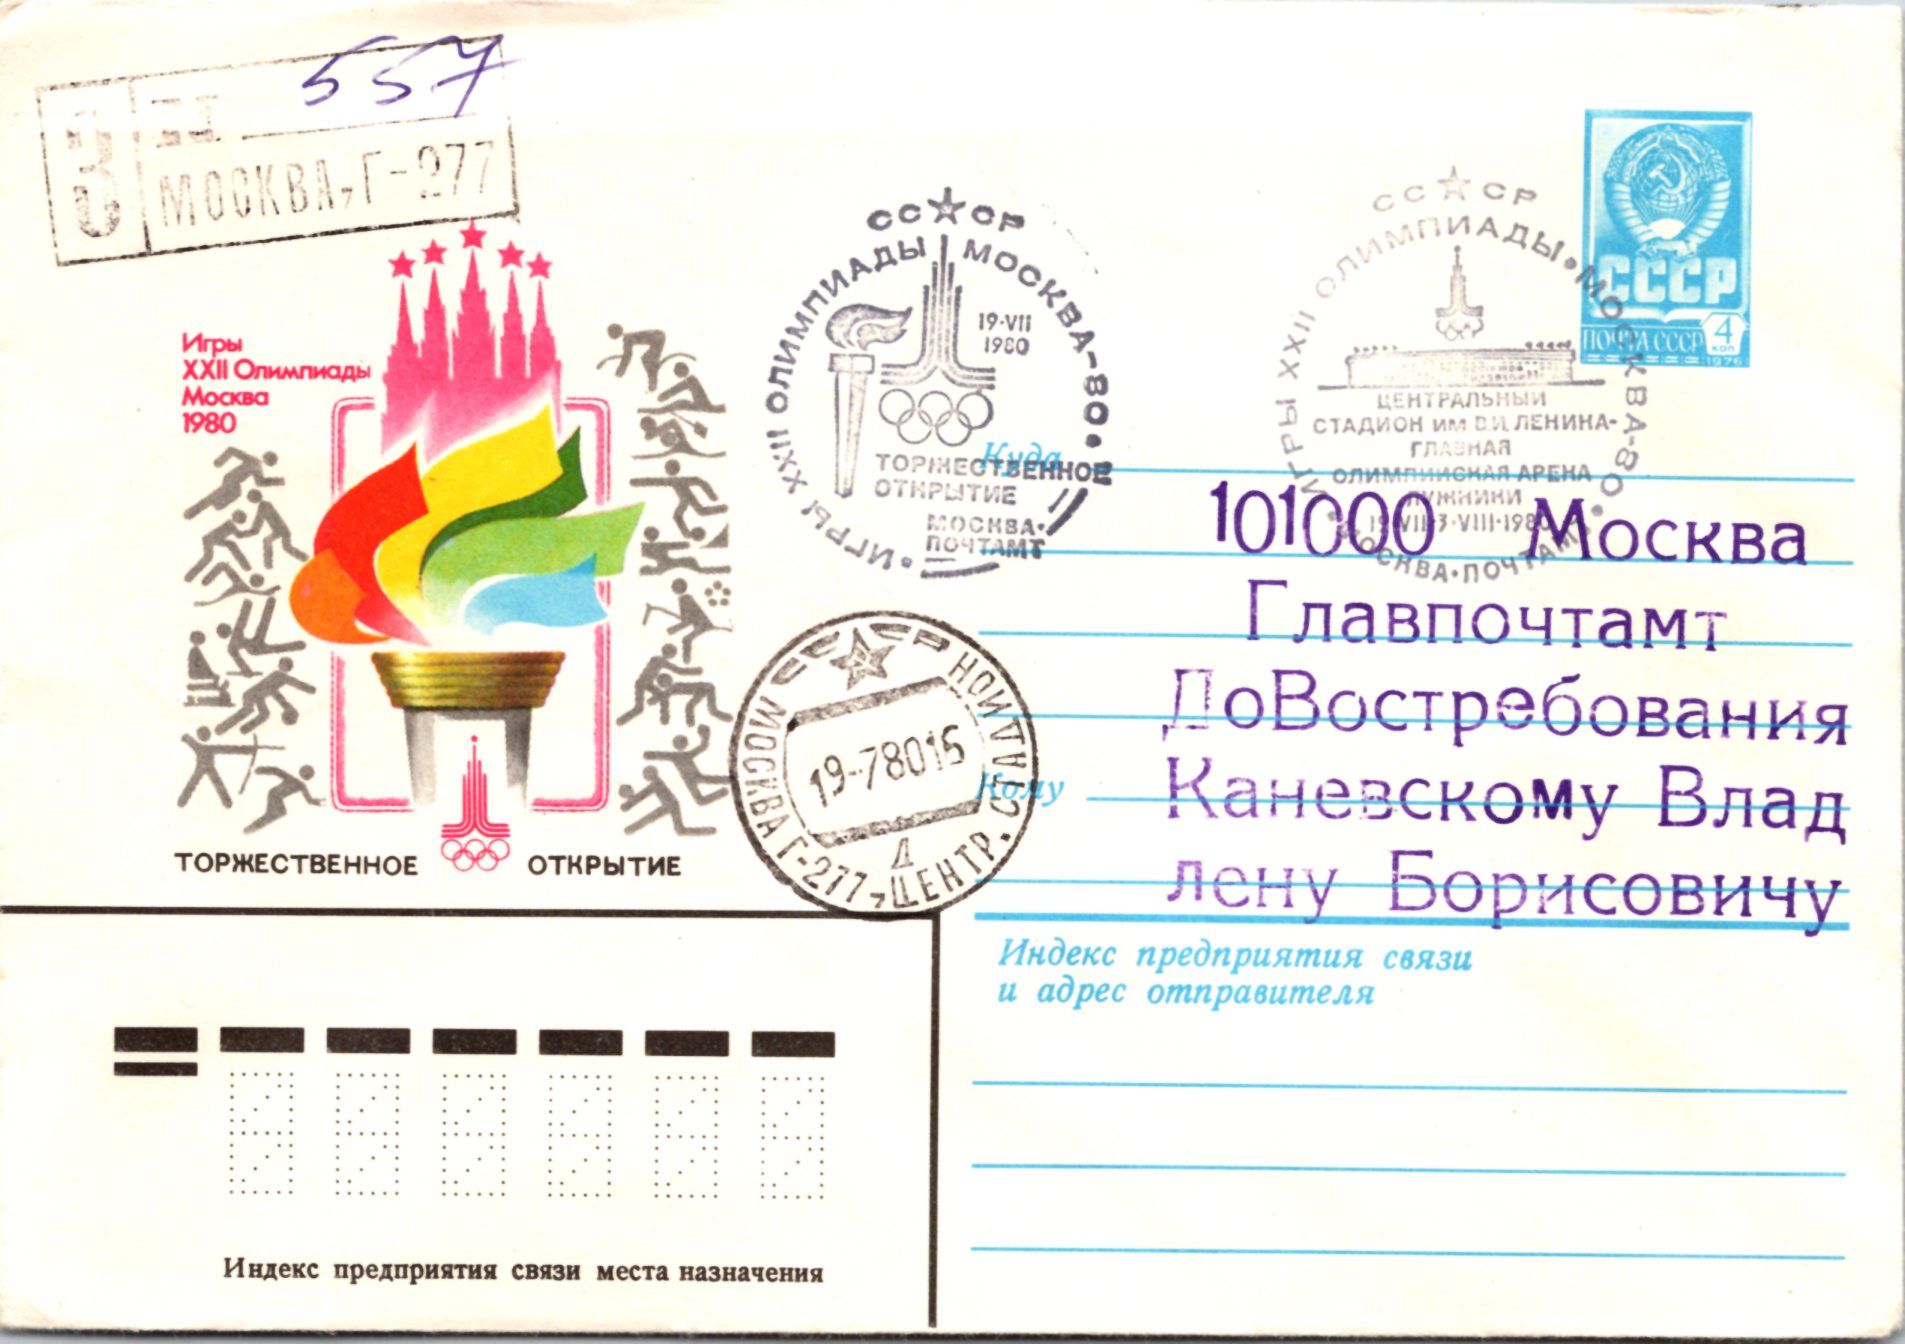 557
З
Н
МОСКВА, Г-277
Игры
XXII Олимпиады
Москва
1980
ТОРЖЕСТВЕННОЕ ОТКРЫТИЕ
СССР
ИГРЫ XXII ОЛИМПИАДЫ МОСКВА-80
19·VII
1980
ТОРЖЕСТВЕННОЕ
ОТКРЫТИЕ
МОСКВА-
ПОЧТАМТ
СССР
ИГРЫ XXII ОЛИМПИАДЫ • МОСКВА-80
ЦЕНТРАЛЬНЫЙ
СТАДИОН ИМ В.И. ЛЕНИНА-
ГЛАВНАЯ
ОЛИМПИЙСКАЯ АРЕНА
ЛУЖНИКИ
19·VII-3·VIII·1980
МОСКВА·ПОЧТАМТ
СССР
ПОЧТА СССР
4
КОП
1976
Куда
101000 Москва
Главпочтамт
ДоВостребования
Кому
Каневскому Влад
лену Борисовичу
МОСКВА Г-277, ЦЕНТР. СТАДИОН
19-78016
Д
Индекс предприятия связи
и адрес отправителя
Индекс предприятия связи места назначения